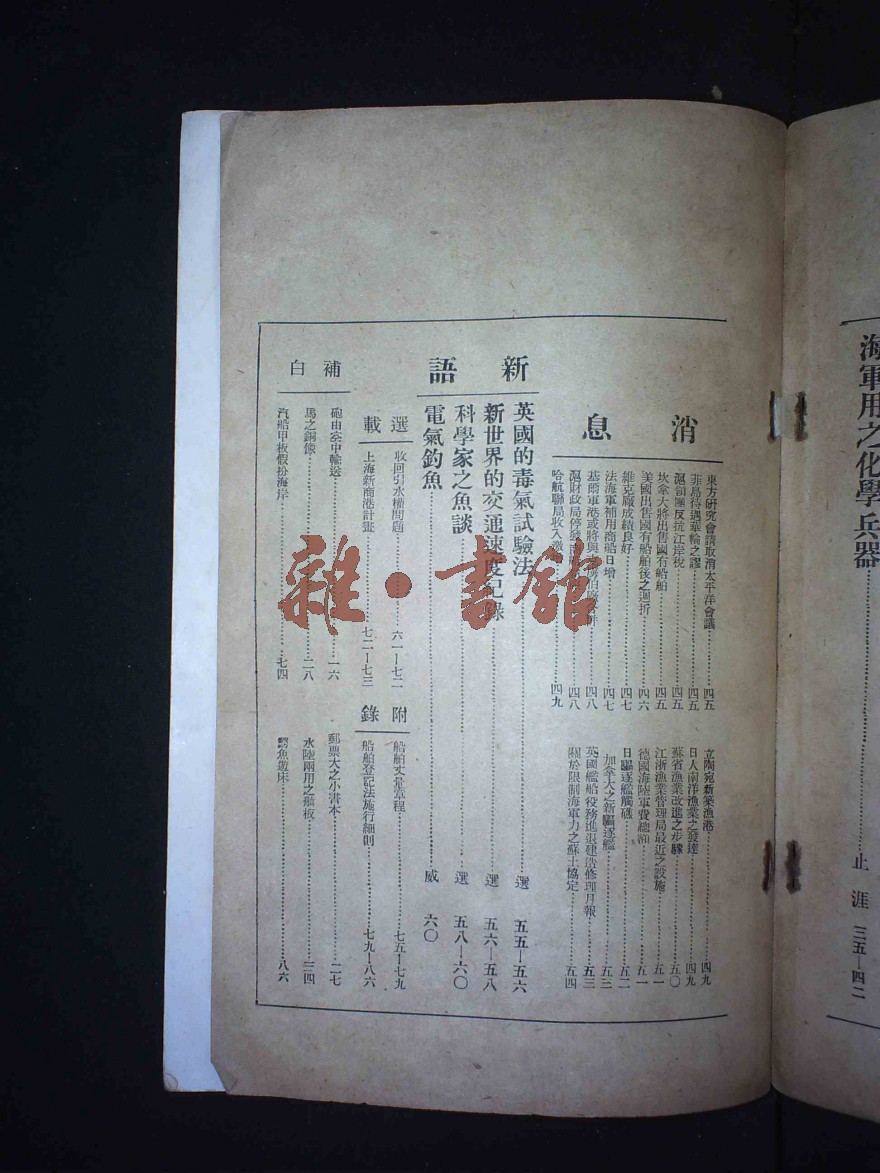 海軍用之化學兵器……止涯 三五—四二
消息
東方研究會請取消太平洋會議……四五
菲島待遇華輪之謬……四五
滬領團反抗江岸稅……四五
坎拿大將出售國有船舶……四五
美國出售國有船舶後之週折……四六
維克廠成績良好……四七
法海軍補用商船日增……四七
基爾軍港或將與……四八
滬財政局停發……四八
哈航聯局收入激……四九
立陶宛新築漁港……四九
日人南洋漁業之發達……四九
蘇省漁業改進之步驟……五〇
江浙漁業管理局最近之設施……五一
德國海陸軍費總額……五一
日驅逐艦觸礁……五二
加拿大之新驅逐艦……五三
英國艦船役務進退建造修理月報……五三
關於限制海軍力之蘇土協定……五四
新語
英國的毒氣試驗法……選 五五—五六
新世界的交通速度記錄……選 五六—五八
科學家之魚談……選 五八—六〇
電氣釣魚……威 六〇
選載
收回引水權問題……六一—七二
上海新商港計畫……七二—七三
附錄
船舶丈量章程……七五—七九
船舶登記法施行細則……七九—八六
補白
砲由空中輸送……一六
馬之銅像……二八
汽船甲板假扮海岸……七四
郵票大之小書本……二七
水陸兩用之……板……三四
鱷魚遊床……八六
雜·書館